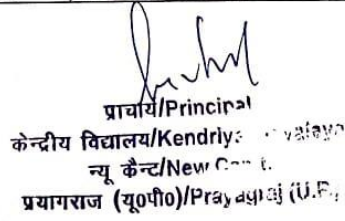 प्राचार्य/Principal
केन्द्रीय विद्यालय/Kendriya
न्यू कैन्ट/New
प्रयागराज (यू०पी०)/Prayagraj (U.P.)